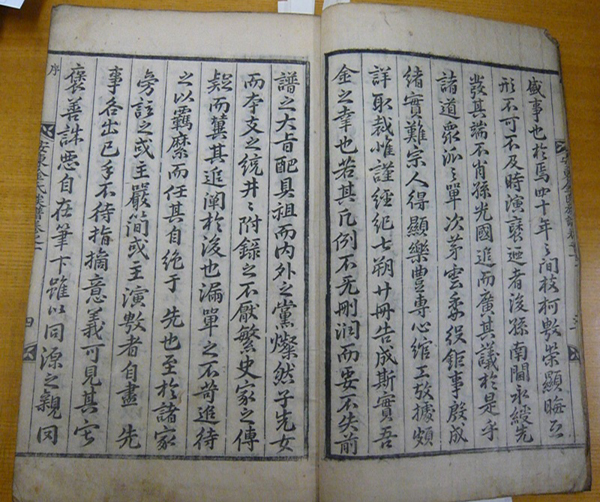 盛事也於焉四十年之間枝柯敷榮顯晦互
形不可不及時演裒迺者後孫南闓永綬先
發其端不肖孫光國追而廣其議於是乎
諸道衆派之單次苐雲委役鉅事殷成
緖實難宗人得顯樂豊專心綰工攷據頗
詳取裁惟謹經紀七朔廿冊告成斯實吾
金之幸也若其凡例不无刪潤而要不失前
譜之大旨配具祖而內外之黨燦然子先女
而本支之統井〻附錄之不厭繁史家之傳
疑而冀其追闡於後也漏單之不苛追待
之以羈縻而任其自絶于 先也至於諸家
旁註之或主嚴簡或主演敷者自盡 先
事各出已手不待指摘意義可見其它
褒善誅惡自在筆下雖以同源之親同
序
安東金氏族譜卷之一
四